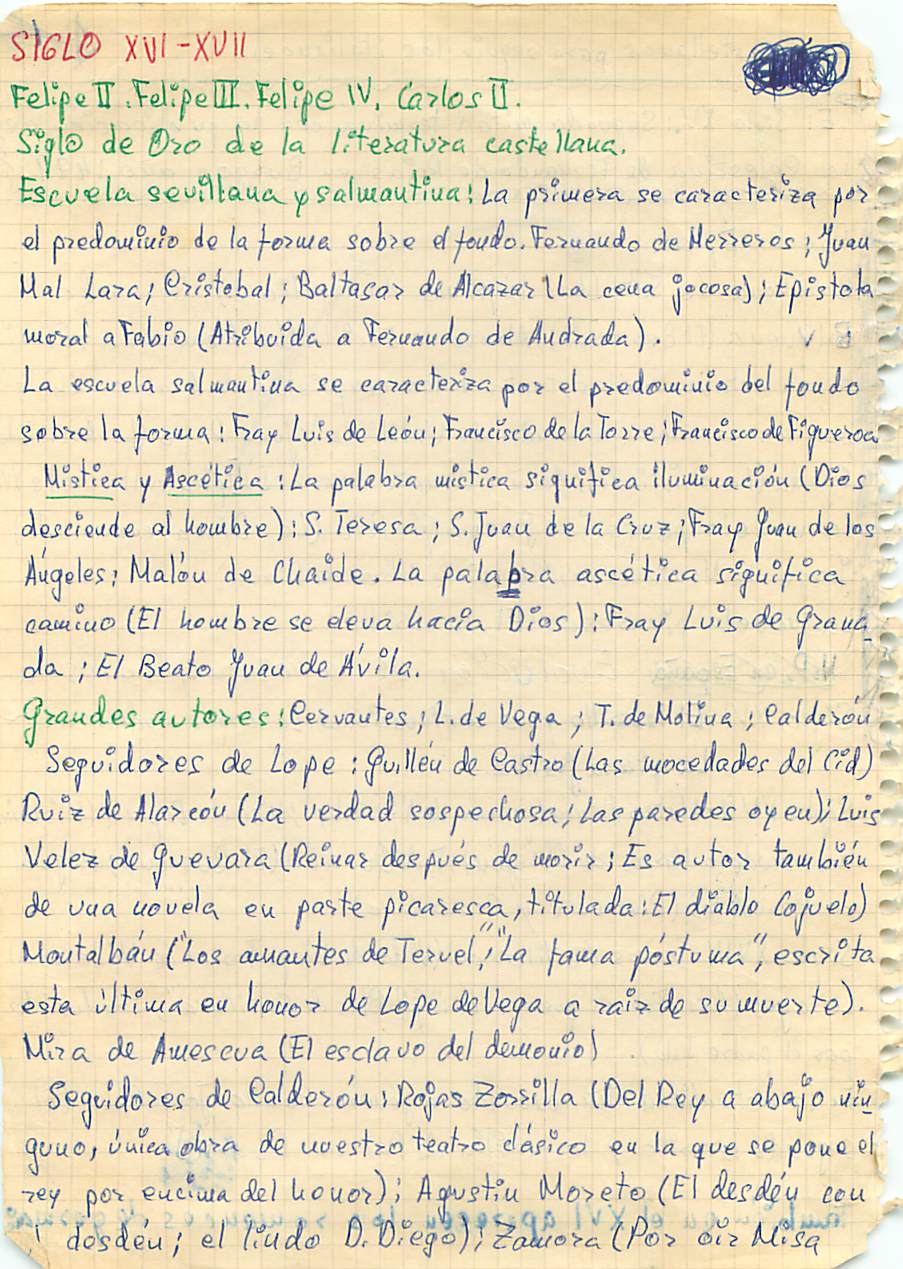 SIGLO XVI-XVII
Felipe II. Felipe III. Felipe IV, Carlos II.
Siglo de Oro de la literatura castellana.
Escuela sevillana y salmantina: La primera se caracteriza por
el predominio de la forma sobre el fondo. Fernando de Herreros; Juan
Mal Lara; Cristobal; Baltasar de Alcazar (La cena jocosa); Epistola
moral a Fabio (Atribuida a Fernando de Andrada).
La escuela salmantina se caracteriza por el predominio del fondo
sobre la forma: Fray Luis de León; Francisco de la Torre; Francisco de Figueroa
Mistica y Ascética: La palabra mistica significa iluminación (Dios
desciende al hombre): S. Teresa; S. Juan de la Cruz; Fray Juan de los
Ángeles; Malón de Chaide. La palabra ascética significa
camino (El hombre se eleva hacia Dios): Fray Luis de Grana_
da; El Beato Juan de Ávila.
Grandes autores: Cervantes; L. de Vega; T. de Molina; Calderón
Seguidores de Lope: Guillén de Castro (Las mocedades del Cid)
Ruiz de Alarcón (La verdad sospechosa; Las paredes oyen); Luis
Velez de Guevara (Reinar después de morir; Es autor también
de una novela en parte picaresca, titulada: El diablo Cojuelo)
Montalbán ("Los amantes de Teruel", "La fama póstuma", escrita
esta última en honor de Lope de Vega a raiz de su muerte).
Mira de Amescua (El esclavo del demonio)
Seguidores de Calderón: Rojas Zorrilla (Del Rey a abajo nin_
guno, única obra de nuestro teatro clásico en la que se pone el
rey por encima del honor); Agustin Moreto (El desdén con
desdén; el lindo D. Diego); Zamora (Por oir Misa